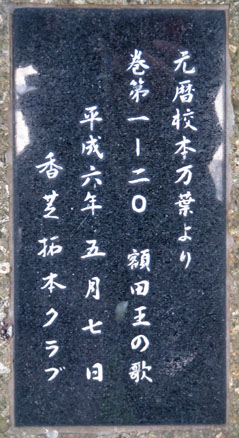 元暦校本万葉より
巻第一ー二〇　額田王の歌
平成六年　五月七日
香芝拓本クラブ